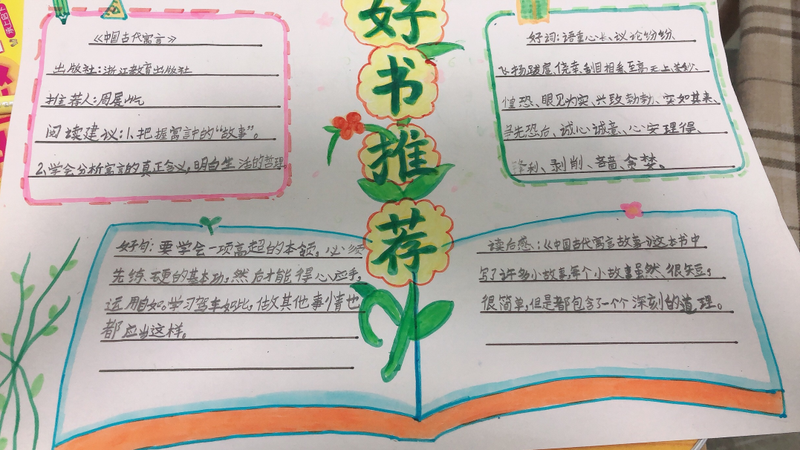 好书推荐
《中国古代寓言》
出版社:浙江教育出版社
推荐人:周展
阅读建议:1.把握寓言中的“故事”。
2.学会分析寓言的真正含义,明白生活的哲理
好词:语重心长、议论纷纷、
飞扬跋扈、侥幸、刮目相看、至高无上、
惶恐、眼见为实、兴致勃勃、突如其来、
争先恐后、诚心诚意、心安理得、
剥削、吝啬、贪婪。
好句:要学会一项高超的本领,必须
先练 硬的基本功,然后才能得心应手,
运用自如。学习驾车如此,做其他事情也
都应当这样。
读后感:《中国古代寓言故事》这本书中
写了许多小故事,每个小故事虽然很短,
很简单,但是都包含了一个个深刻的道理。